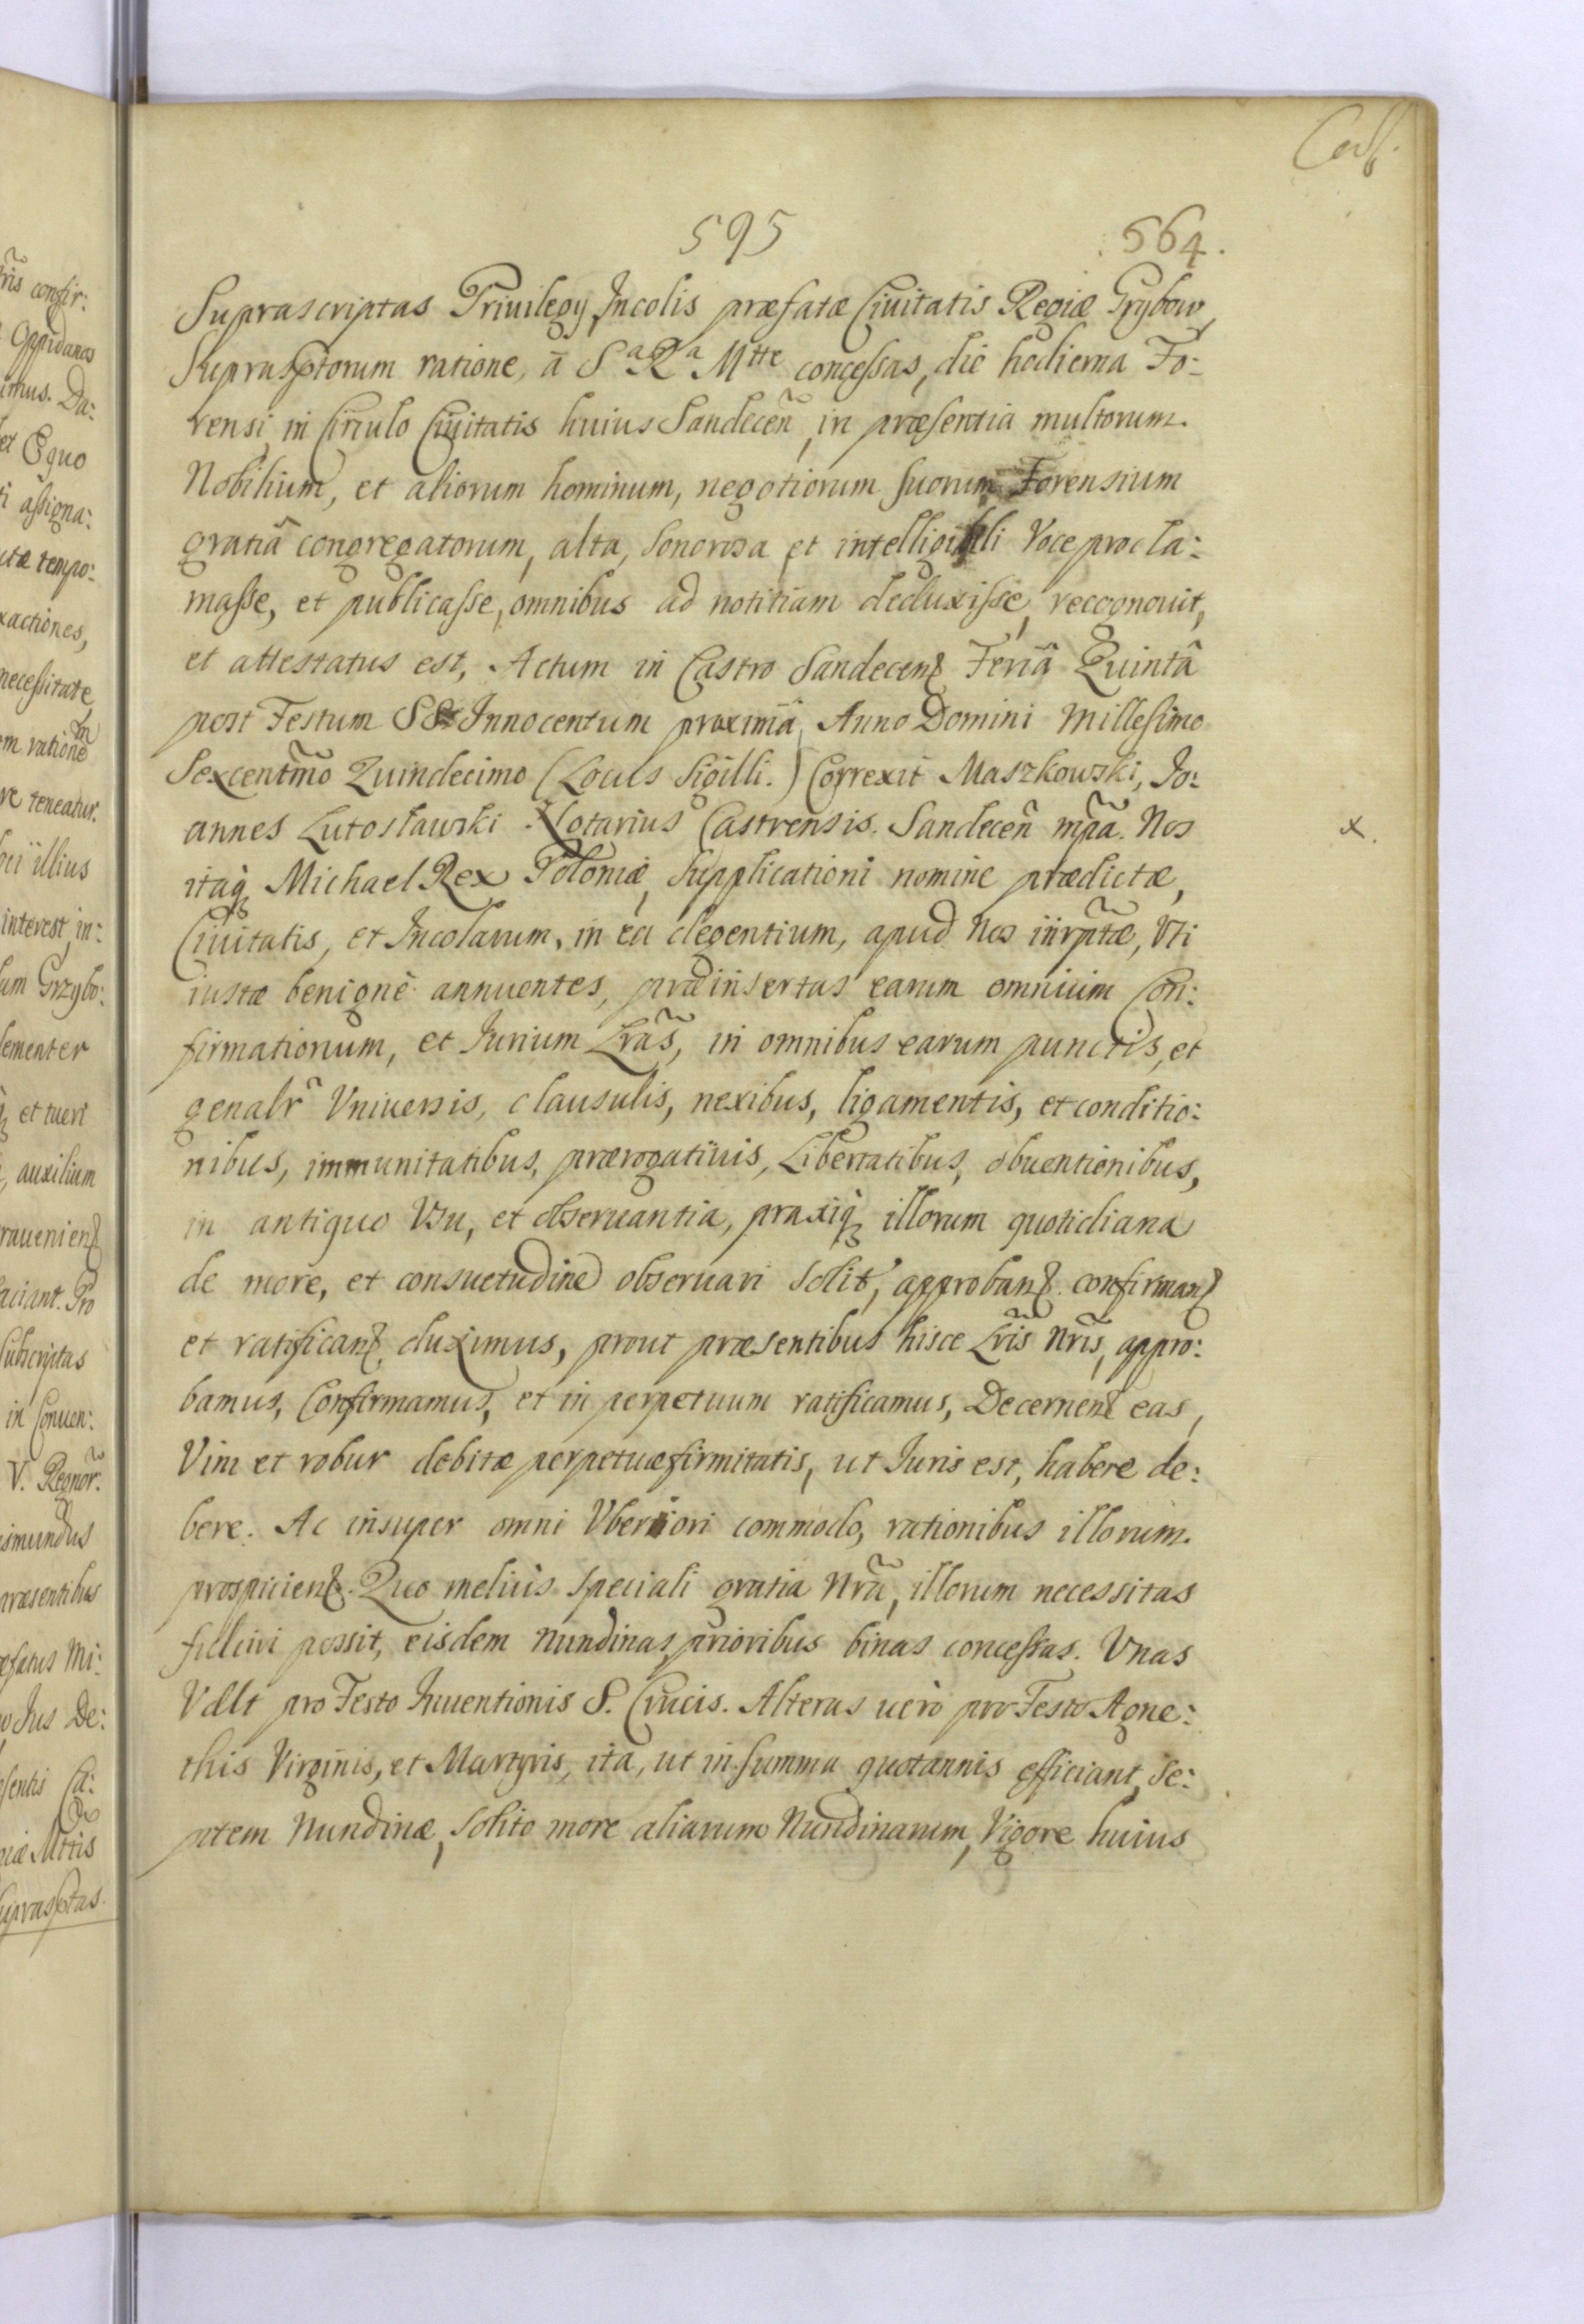 595
564.
Suprascriptas Priuilegy Incolis præfatæ Ciuitatis Regiæ Grybow
Suprasptorum ratione, ã Sª Rª Mtte concessas, die hodierna Fo:
rensi in Circulo Ciuitatis huius Sandeceñ, in præsentia multorum.
Nobilium, et aliorum hominum, negotiorum suorum Forensium
gratiâ congregatorum, alta, sonorosa et intelligibili Voce procla:
masse, et publicasse, omnibus ad notitiam deduxisse, recognouit,
et attestatus est, Actum in Castro Sandecenʒ Feriâ Quintâ
post Festum SS Innocentum proximâ, Anno Domini Millesimo
Sexcentm̃o Quindecimo (Locus Sigilli.) Correxit Maszkowski, Jo:
annes Lutosławski Notarius Castrensis. Sandeceñ mp̃a. Nos
itaq Michael Rex Poloniæ, Supplicationi nomine prædictæ,
Ciuitatis, et Incolarum, in ea degentium, apud Nos iñrptæ, Vti
iustæ benignè annuentes, præinsertas earum omnium Con:
firmationum, et Iurium Lr̃as, in omnibus earum punctis, et
genalr̃ Vniuersis, clausulis, nexibus, ligamentis, et conditio:
nibus, immunitatibus, prærogatiuis, Libertatibus, obuentionibus,
in antiquo Vsu, et obseruantia, praxiq illorum quotidiana
de more, et consuetudine obseruari solit, approbanʒ. confirmanʒ
et ratificanʒ duximus, prout præsentibus hisce Lr̃is Nr̃is, appro:
bamus, Confirmamus, et in perpetuum ratificamus, Decernenʒ eas,
Vim et robur debitæ perpetuæ firmitatis, ut Iuris est, habere de:
bere. Ac insuper omni Vberiori commodo, rationibus illorum.
prospicienʒ. Quo meliùs speciali gratia Nr̃a, illorum necessitas
fulciri possit, eisdem Nundinas, prioribus binas concessas. Vnas
Vdlt pro Festo Inuentionis S. Crucis. Alteras uerò pro Festo Agne:
this Virginis, et Martyris, ita, ut in summa quotannis efficiant Se:
ptem Nundinæ, solito more aliarum Nundinarum, Vigore huius
x.